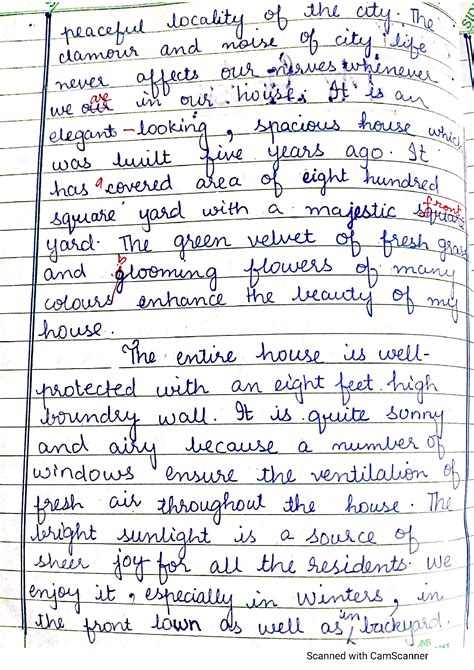 peaceful locality of the city. The
clamour and noise of city life
never affects our nerves whenever
we are in our house. It is an
elegant-looking, spacious house which
was built five years ago. It
has a covered area of eight hundred
square yard with a majestic front
yard. The green velvet of fresh grass
and blooming flowers of many
colours enhance the beauty of my
house.
The entire house is well-
protected with an eight feet high
boundry wall. It is quite sunny
and airy because a number of
windows ensure the ventilation of
fresh air throughout the house. The
bright sunlight is a source of
sheer joy for all the residents. We
enjoy it, especially in Winters, in
the front lown as well as in backyard.
Scanned with CamScanner